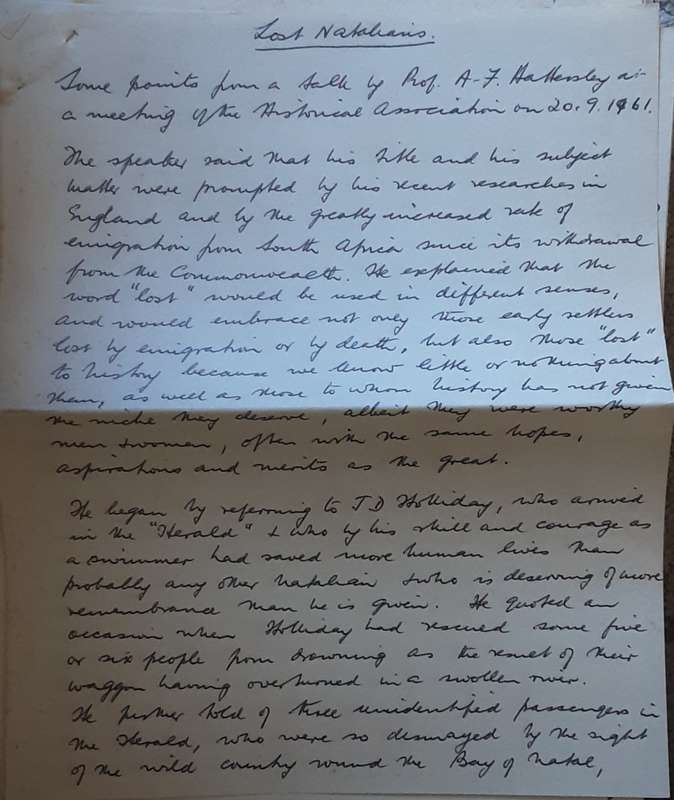 Lost Natalians.
Some points from a talk by Prof. A.F. Hattersley at
a meeting of the Historical Association on 20.9.1961.
The speaker said that his title and his subject
matter were prompted by his recent researches in
England and by the greatly increased rate of
emigration from South Africa since its withdrawal
from the Commonwealth. He explained that the
word "lost" would be used in different senses,
and would embrace not only those early settlers
lost by emigration or by death, but also those "lost"
to history because we know little or nothing about
them, as well as those to whom history has not given
the niche they deserve, albeit they were worthy
men & women, often with the same hopes,
aspirations and merits as the great.
He began by referring to J.D Holliday, who arrived
in the "Herald" & who by his skill and courage as
a swimmer had saved more human lives than
probably any other Natalian & who is deserving of more
remembrance than he is given. He quoted an
occasion when Holliday had rescued some five
or six people from drowning as the result of their
waggon having overturned in a swollen river.
He further told of three unidentified passengers in
the Herald, who were so dismayed by the sight
of the wild country round the Bay of Natal,